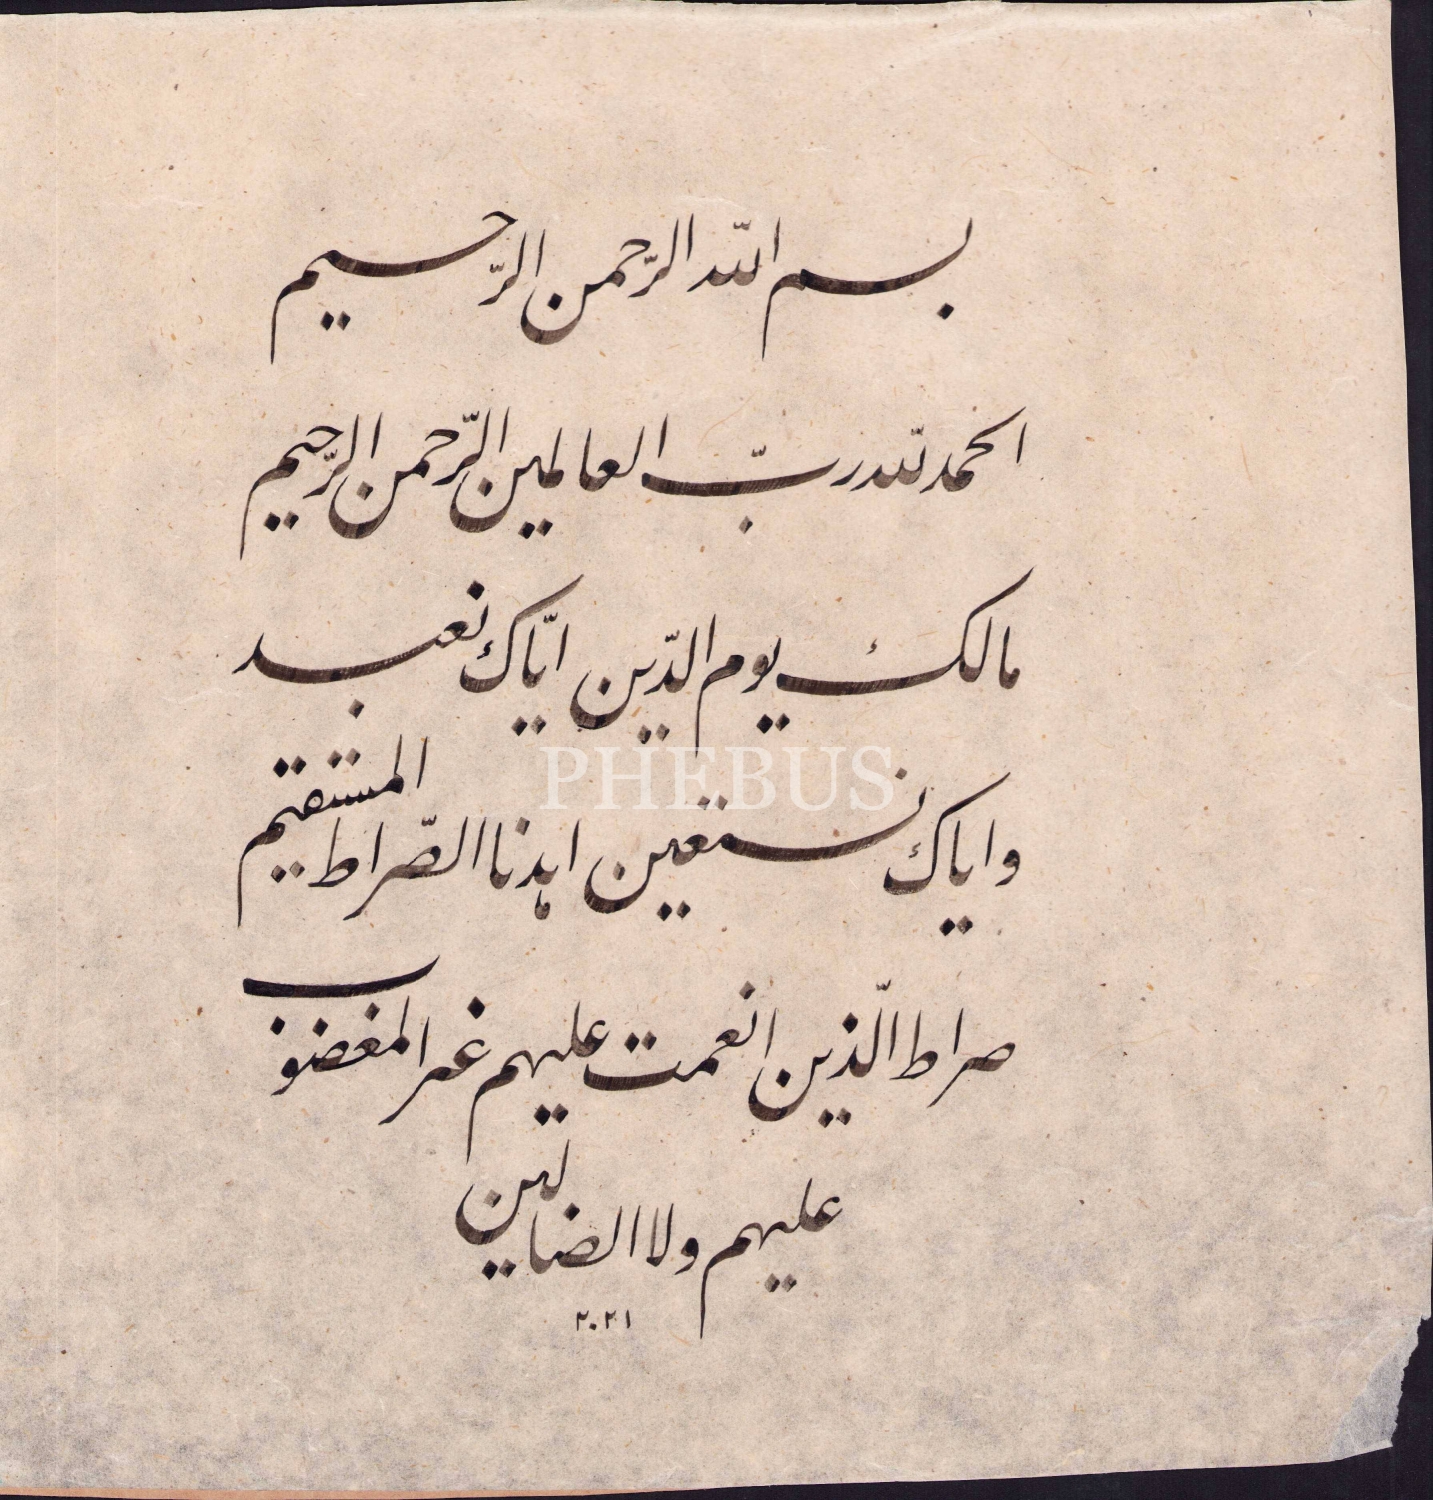 بسم الله الرّحمن الرّحیم
الحمد لله ربّ العالمین الرّحمن الرّحیم
مالک یوم الدّین ایّاک نعبد
وایاک نستعین اهدنا الصّراط المستقیم
صراط الّذین انعمت علیهم غیر المغضوب
علیهم ولا الضالین
۲۰۲۱
PHEBUS